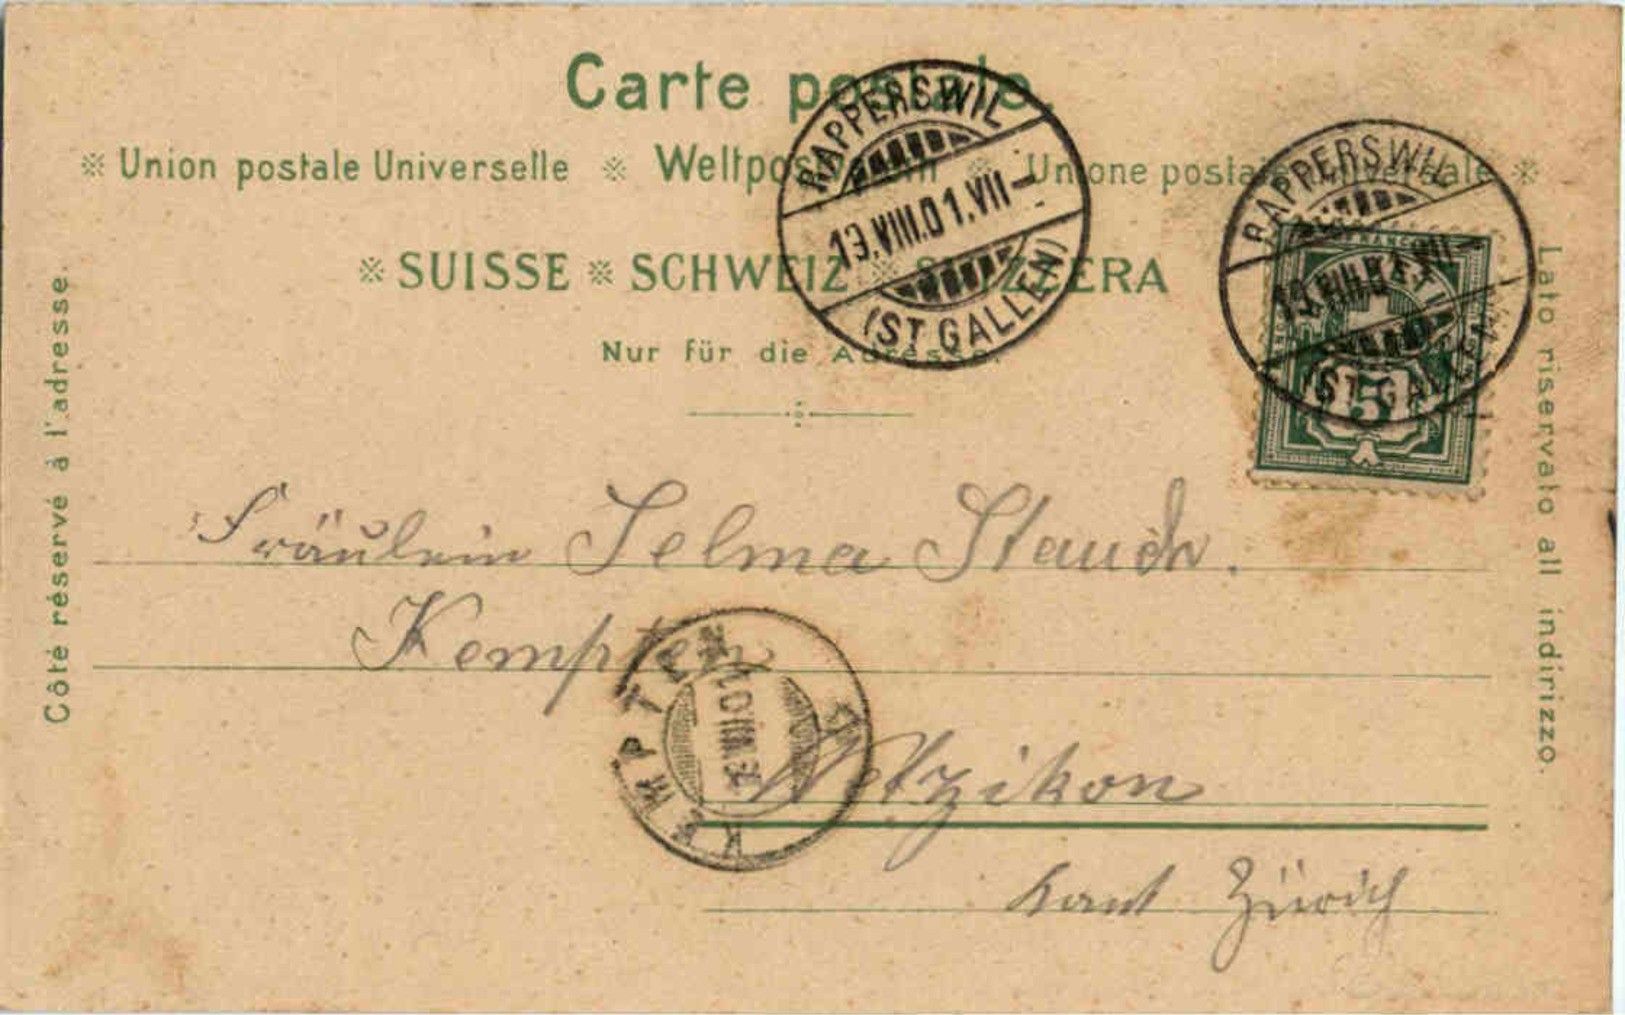 Carte postale.
※ Union postale Universelle ※ Weltpostverein ※ Unione postale universale ※
※ SUISSE ※ SCHWEIZ ※ SVIZZERA
Nur für die Adresse.
Côté réservé à l'adresse.
Lato riservato all indirizzo.
RAPPERSWIL
13.VIII.01.VII-
(ST GALLEN)
RAPPERSWIL
13.VIII.01.VII-
(ST GALLEN)
FRANCO
HELVETIA
5
Fräulein Selma Stauch.
Kempten
KEMPTEN
VIII.01
Wetzikon
Kant Zürich